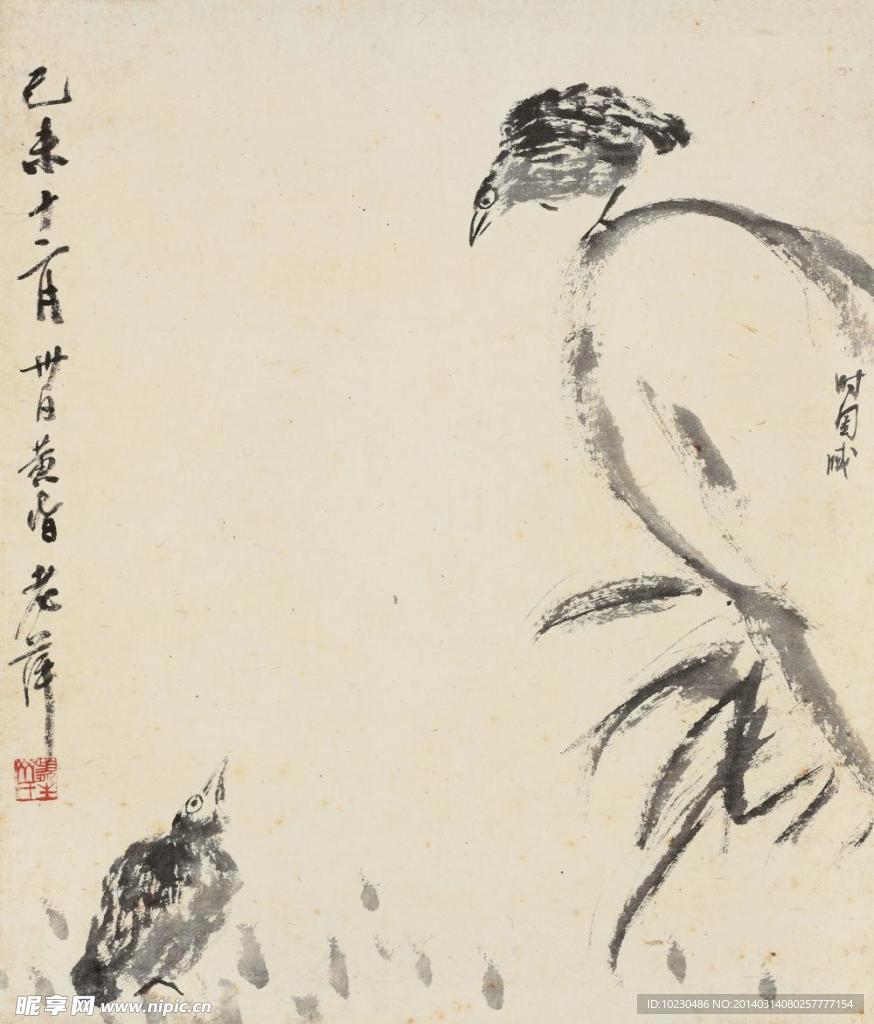 己未十二月卅日黄昏老萍
时
昵享网 www.nipic.cn
ID:10230486 NO:20140314080257777154